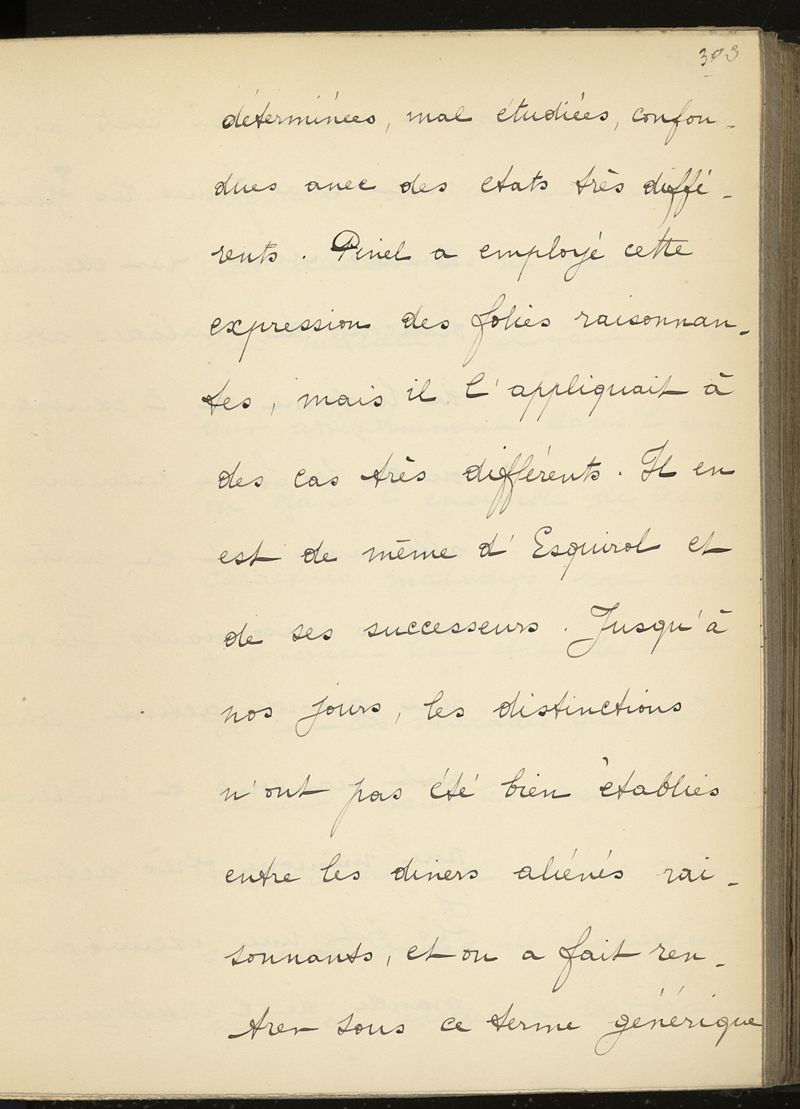 303
déterminées, mal étudiées, confon-
dues avec des états très diffé-
rents. Pinel a employé cette
expression des folies raisonnan-
tes, mais il l'appliquait à
des cas très différents. Il en
est de même d'Esquirol et
de ses successeurs. Jusqu'à
nos jours, les distinctions
n'ont pas été bien établies
entre les divers aliénés rai-
sonnants, et on a fait ren-
trer sous ce terme générique